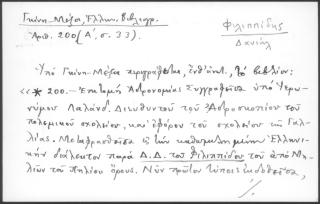 Γκίνη-Μέξα, Ἑλλην. Βιβλιογρ.
Ἀριθ. 200 (Α΄, σ. 33).
Φιλιππίδης
Δανιήλ
Ὑπὸ Γκίνη-Μέξα περιγράφεται, τὸ βιβλίον:
«* 200.— Ἐπιτομὴ Ἀστρονομίας Συγγραφεῖσα ὑπὸ Ἱερω-
νύμου Λαλάνδ Διευθυντοῦ τοῦ Ἀστροσκοπίου τοῦ
πολεμικοῦ σχολείου, καὶ ἐφόρου τοῦ σχολείου τῆς Γαλ-
λίας. Μεταφρασθεῖσα εἰς τὴν καθωμιλημένην Ἑλληνι-
κὴν διάλεκτον παρὰ Δ. Δ. τοῦ Φιλιππίδου τοῦ ἀπὸ Μη-
λιῶν τοῦ Πηλίου ὄρους. Νῦν πρῶτον τύποις ἐκδοθεῖσα,
./.